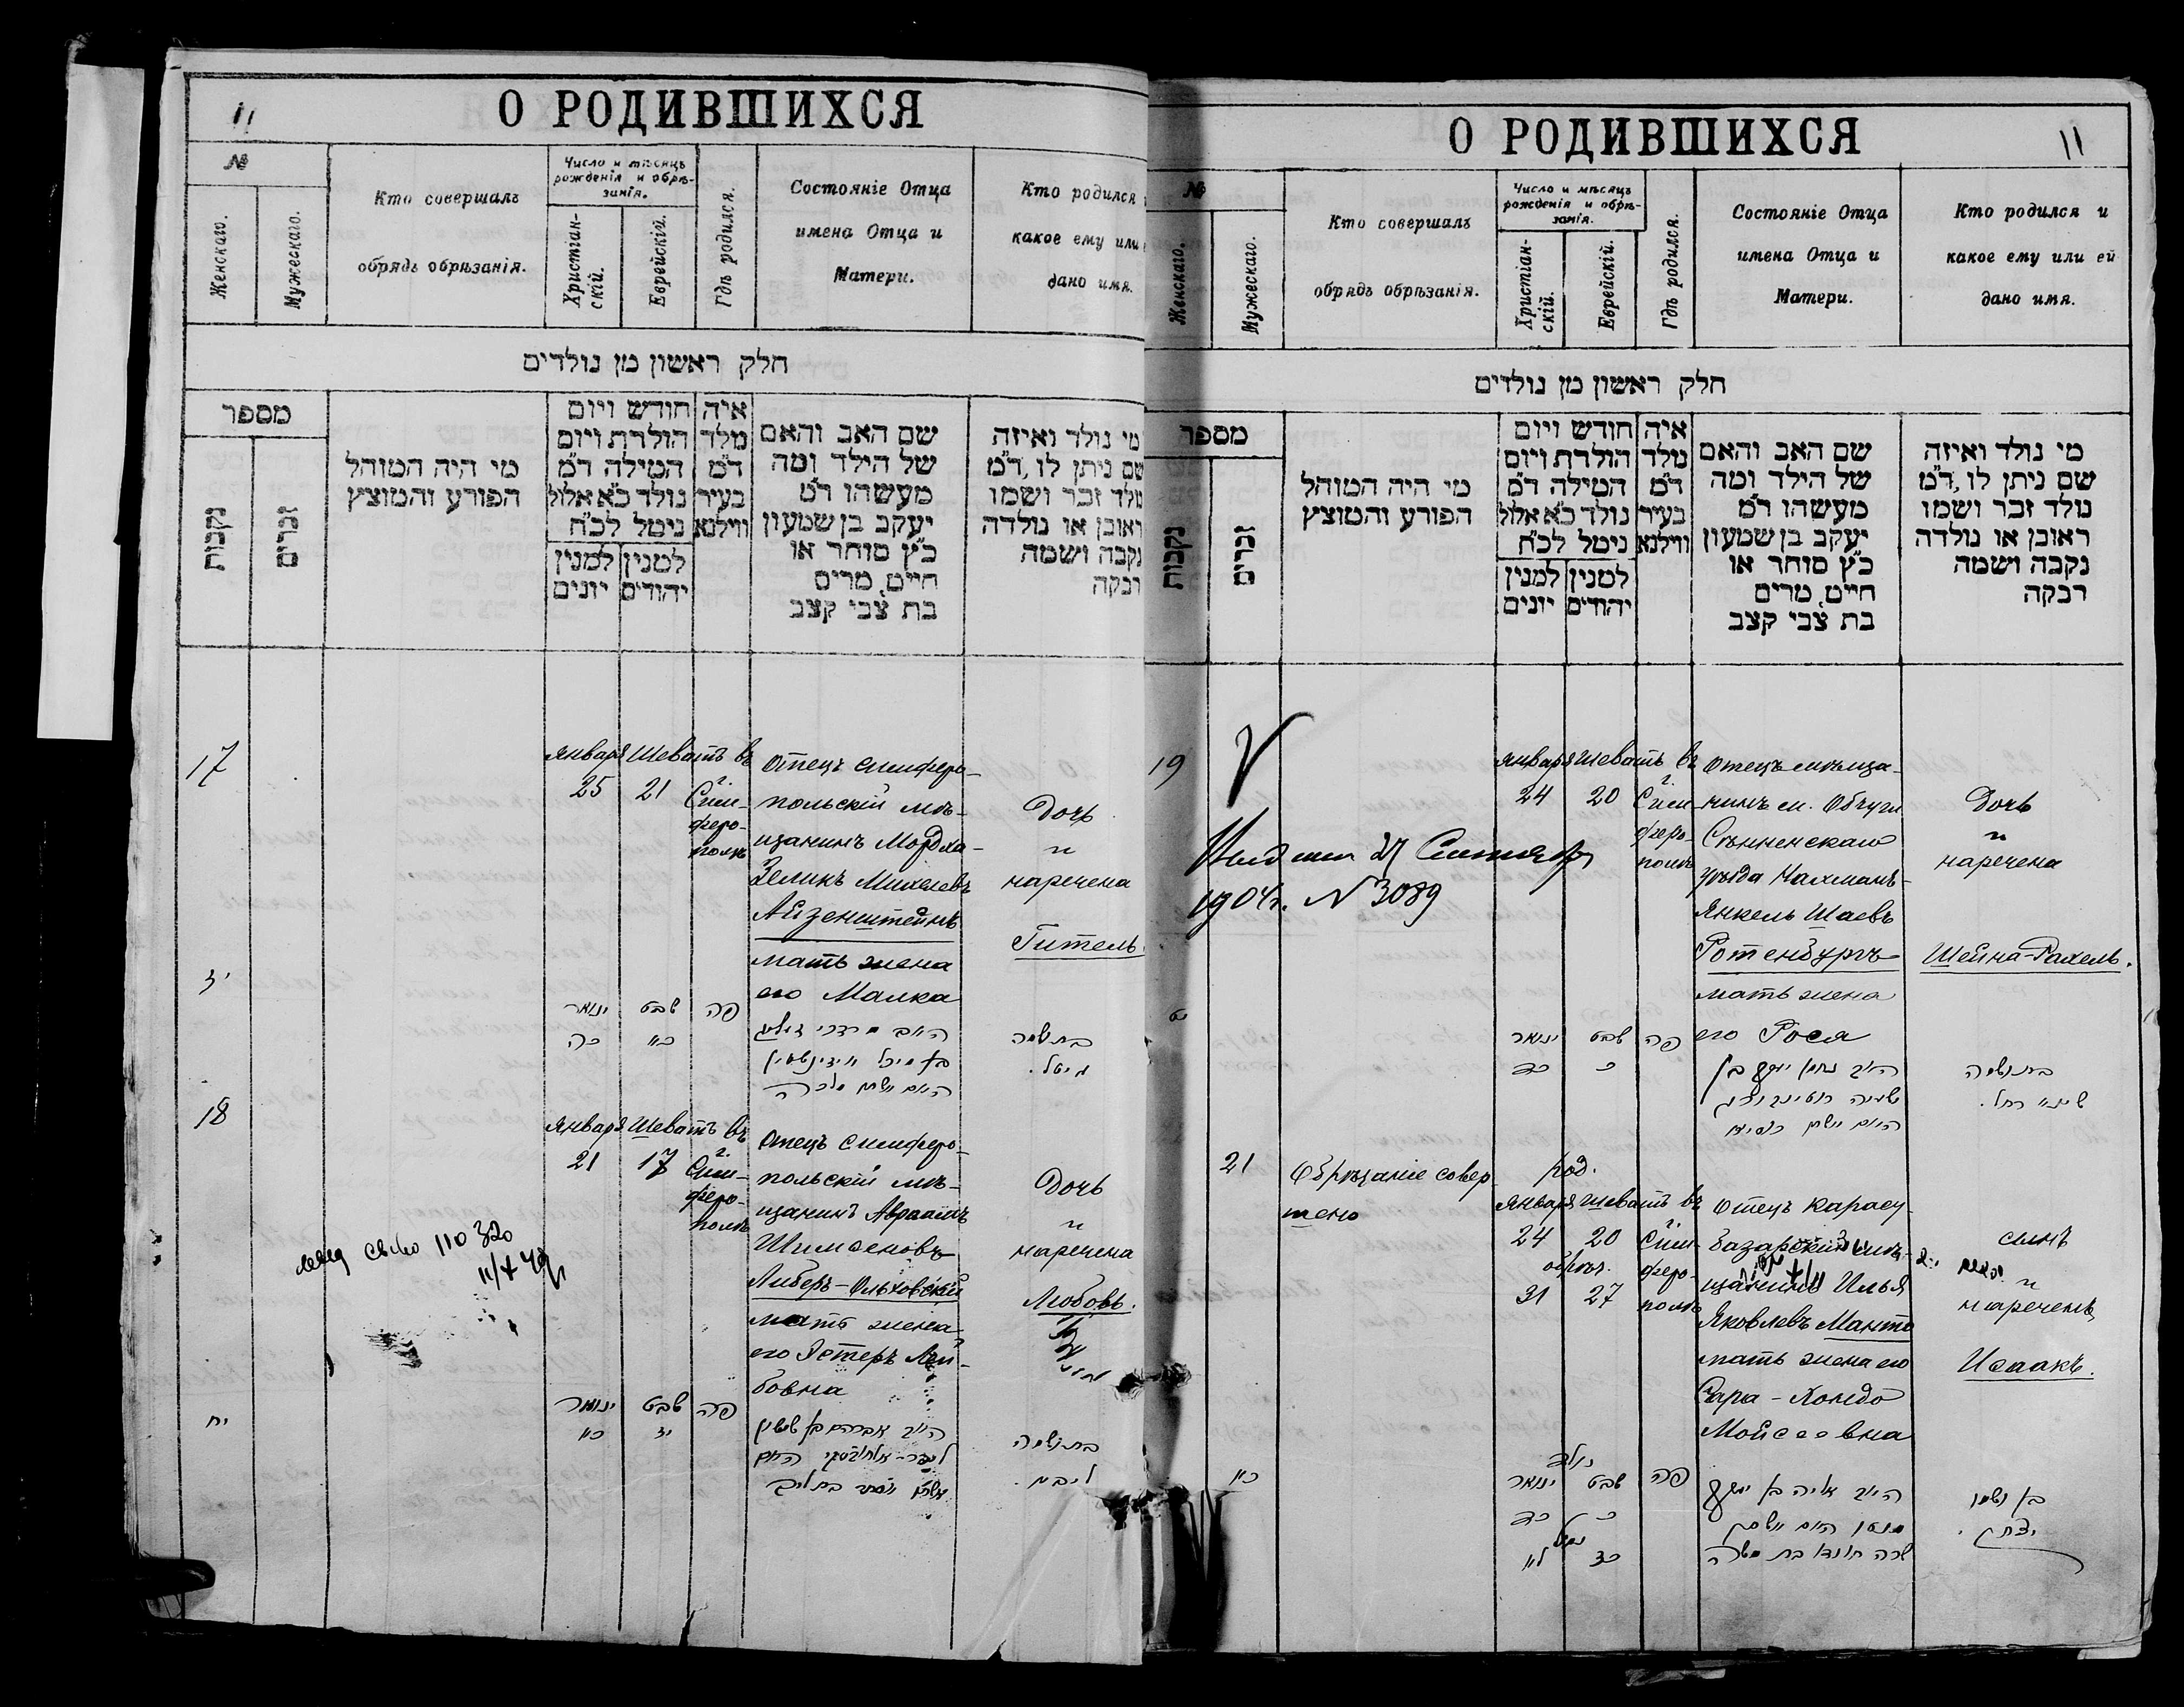 11
О РОДИВШИХСЯ
№
Женскаго.
Мужескаго.
Кто совершалъ
обрядъ обрѣзанія.
Число и мѣсяцъ
рожденія и обрѣ-
занія.
Христіан-
скій.
Еврейскій.
Гдѣ родился.
Состояніе Отца
имена Отца и
Матери.
Кто родился
какое ему или
дано имя.
חלק ראשון מן נולדים
מספר
נקבות
זכרים
מי היה המוהל
הפורע והמוצץ
חודש ויום
הולדת ויום
המילה ד״מ
נולד כ״א אלול
ניסל לכ״ח
למנין
יהודים
למנין
יונים
איה
מלד
ד״מ
בעיר
ווילנא
שם האב והאם
של הילד ומה
מעשהו ד״מ
יעקב בן שמעון
כ״ץ סוחר או
חייט, מרים
בת צבי קצב
מי נולד ואיזה
שם ניתן לו, ד״מ
נולד זכר ושמו
ראובן או נולדה
נקבה ושמה
רבקה
17
Января Шеватъ въ
25 21 г.
Сим-
феро-
полѣ
Отецъ симферо-
польскій мѣ-
щанинъ Мордха-
Зеликъ Михелевъ
Айзенштейнъ
мать жена
его Малка
Дочь
и
наречена
Гитель.
ינואר שבט פה
כה כא
בת ושמה
גיטל.
18
Января Шеватъ въ
21 17 г.
Сим-
феро-
полѣ
Отецъ симферо-
польскій мѣ-
щанинъ Авраамъ
Шимоновъ
Либеръ-Ольховскій
мать жена
его Эстеръ Лей-
бовна
Дочь
и
наречена
Любовь.
110320
יח
ינואר שבט פה
כא יז
בת ושמה
ליבע.
О РОДИВШИХСЯ
11
№
Женскаго.
Мужескаго.
Кто совершалъ
обрядъ обрѣзанія.
Число и мѣсяцъ
рожденія и обрѣ-
занія.
Христіан-
скій.
Еврейскій.
Гдѣ родился.
Состояніе Отца
имена Отца и
Матери.
Кто родился и
какое ему или ей
дано имя.
חלק ראשון מן נולדים
מספר
נקבות
זכרים
מי היה המוהל
הפורע והמוצץ
חודש ויום
הולדת ויום
המילה ד״מ
נולד כ״א אלול
ניסל לכ״ח
למנין
יהודים
למנין
יונים
איה
מלד
ד״מ
בעיר
ווילנא
שם האב והאם
של הילד ומה
מעשהו ד״מ
יעקב בן שמעון
כ״ץ סוחר או
חייט, מרים
בת צבי קצב
מי נולד ואיזה
שם ניתן לו, ד״מ
נולד זכר ושמו
ראובן או נולדה
נקבה ושמה
רבקה
19
27 Сентября
1904 г. N 3089
Января Шеватъ въ
24 20 г.
Сим-
феро-
полѣ
Отецъ мѣща-
нинъ м. Обчуги
Сѣнненскаго
уѣзда Нахманъ-
Янкель Шаевъ
Ротенбургъ
мать жена
его Рося
Дочь
и
наречена
Шейна-Рахель.
יט
ינואר שבט פה
כד כ
בת ושמה
שיינא רחל.
21
Обрѣзаніе совер-
шено
род.
Января Шеватъ въ
24 20 г.
обрѣз.
31 27
Сим-
феро-
полѣ
Отецъ Карасу-
базарскій мѣ-
щанинъ Илья
Яковлевъ Манто
мать жена его
Сара-Хондо
Мойсеевна
сынъ
и
нареченъ
Исаакъ.
כא
נולד
ינואר שבט פה
כד כ
נמול
לא כז
האב אליה בן יעקב
מנטו האם אשתו
שרה חונדו בת משה
בן ושמו
יצחק.